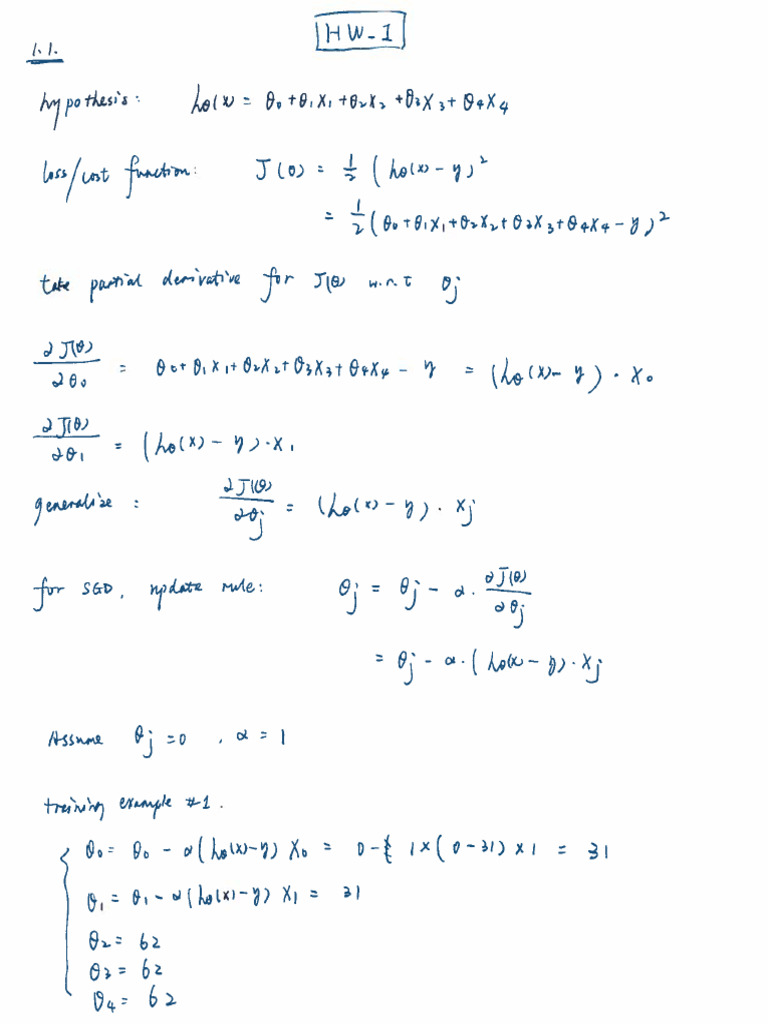 HW-1
1.1.
hypothesis: hθ(x) = θ0 + θ1x1 + θ2x2 + θ3x3 + θ4x4
loss/cost function: J(θ) = 1/2 (hθ(x) - y)²
= 1/2 (θ0 + θ1x1 + θ2x2 + θ3x3 + θ4x4 - y)²
take partial derivative for J(θ) w.r.t θj
∂J(θ)/∂θ0 = θ0 + θ1x1 + θ2x2 + θ3x3 + θ4x4 - y = (hθ(x) - y) · x0
∂J(θ)/∂θ1 = (hθ(x) - y) · x1
generalize: ∂J(θ)/∂θj = (hθ(x) - y) · xj
for SGD, update rule: θj = θj - α · ∂J(θ)/∂θj
= θj - α · (hθ(x - y) · xj
Assume θj = 0, α = 1
training example #1.
θ0 = θ0 - α(hθ(x) - y) x0 = 0 - 1 × (0 - 31) × 1 = 31
θ1 = θ1 - α(hθ(x) - y) x1 = 31
θ2 = 62
θ3 = 62
θ4 = 62